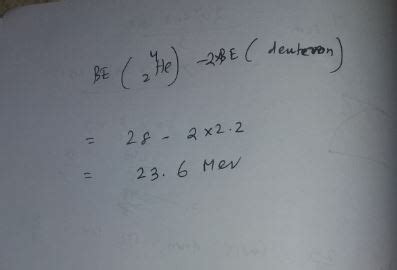 BE ( ⁴₂He ) - 2×BE ( deuteron )
= 28 - 2×2.2
= 23.6 Mev